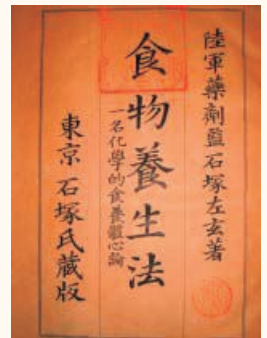 陸軍藥劑監石塚左玄著
食物養生法
一名化學的食養體心論
東京 石塚氏藏版